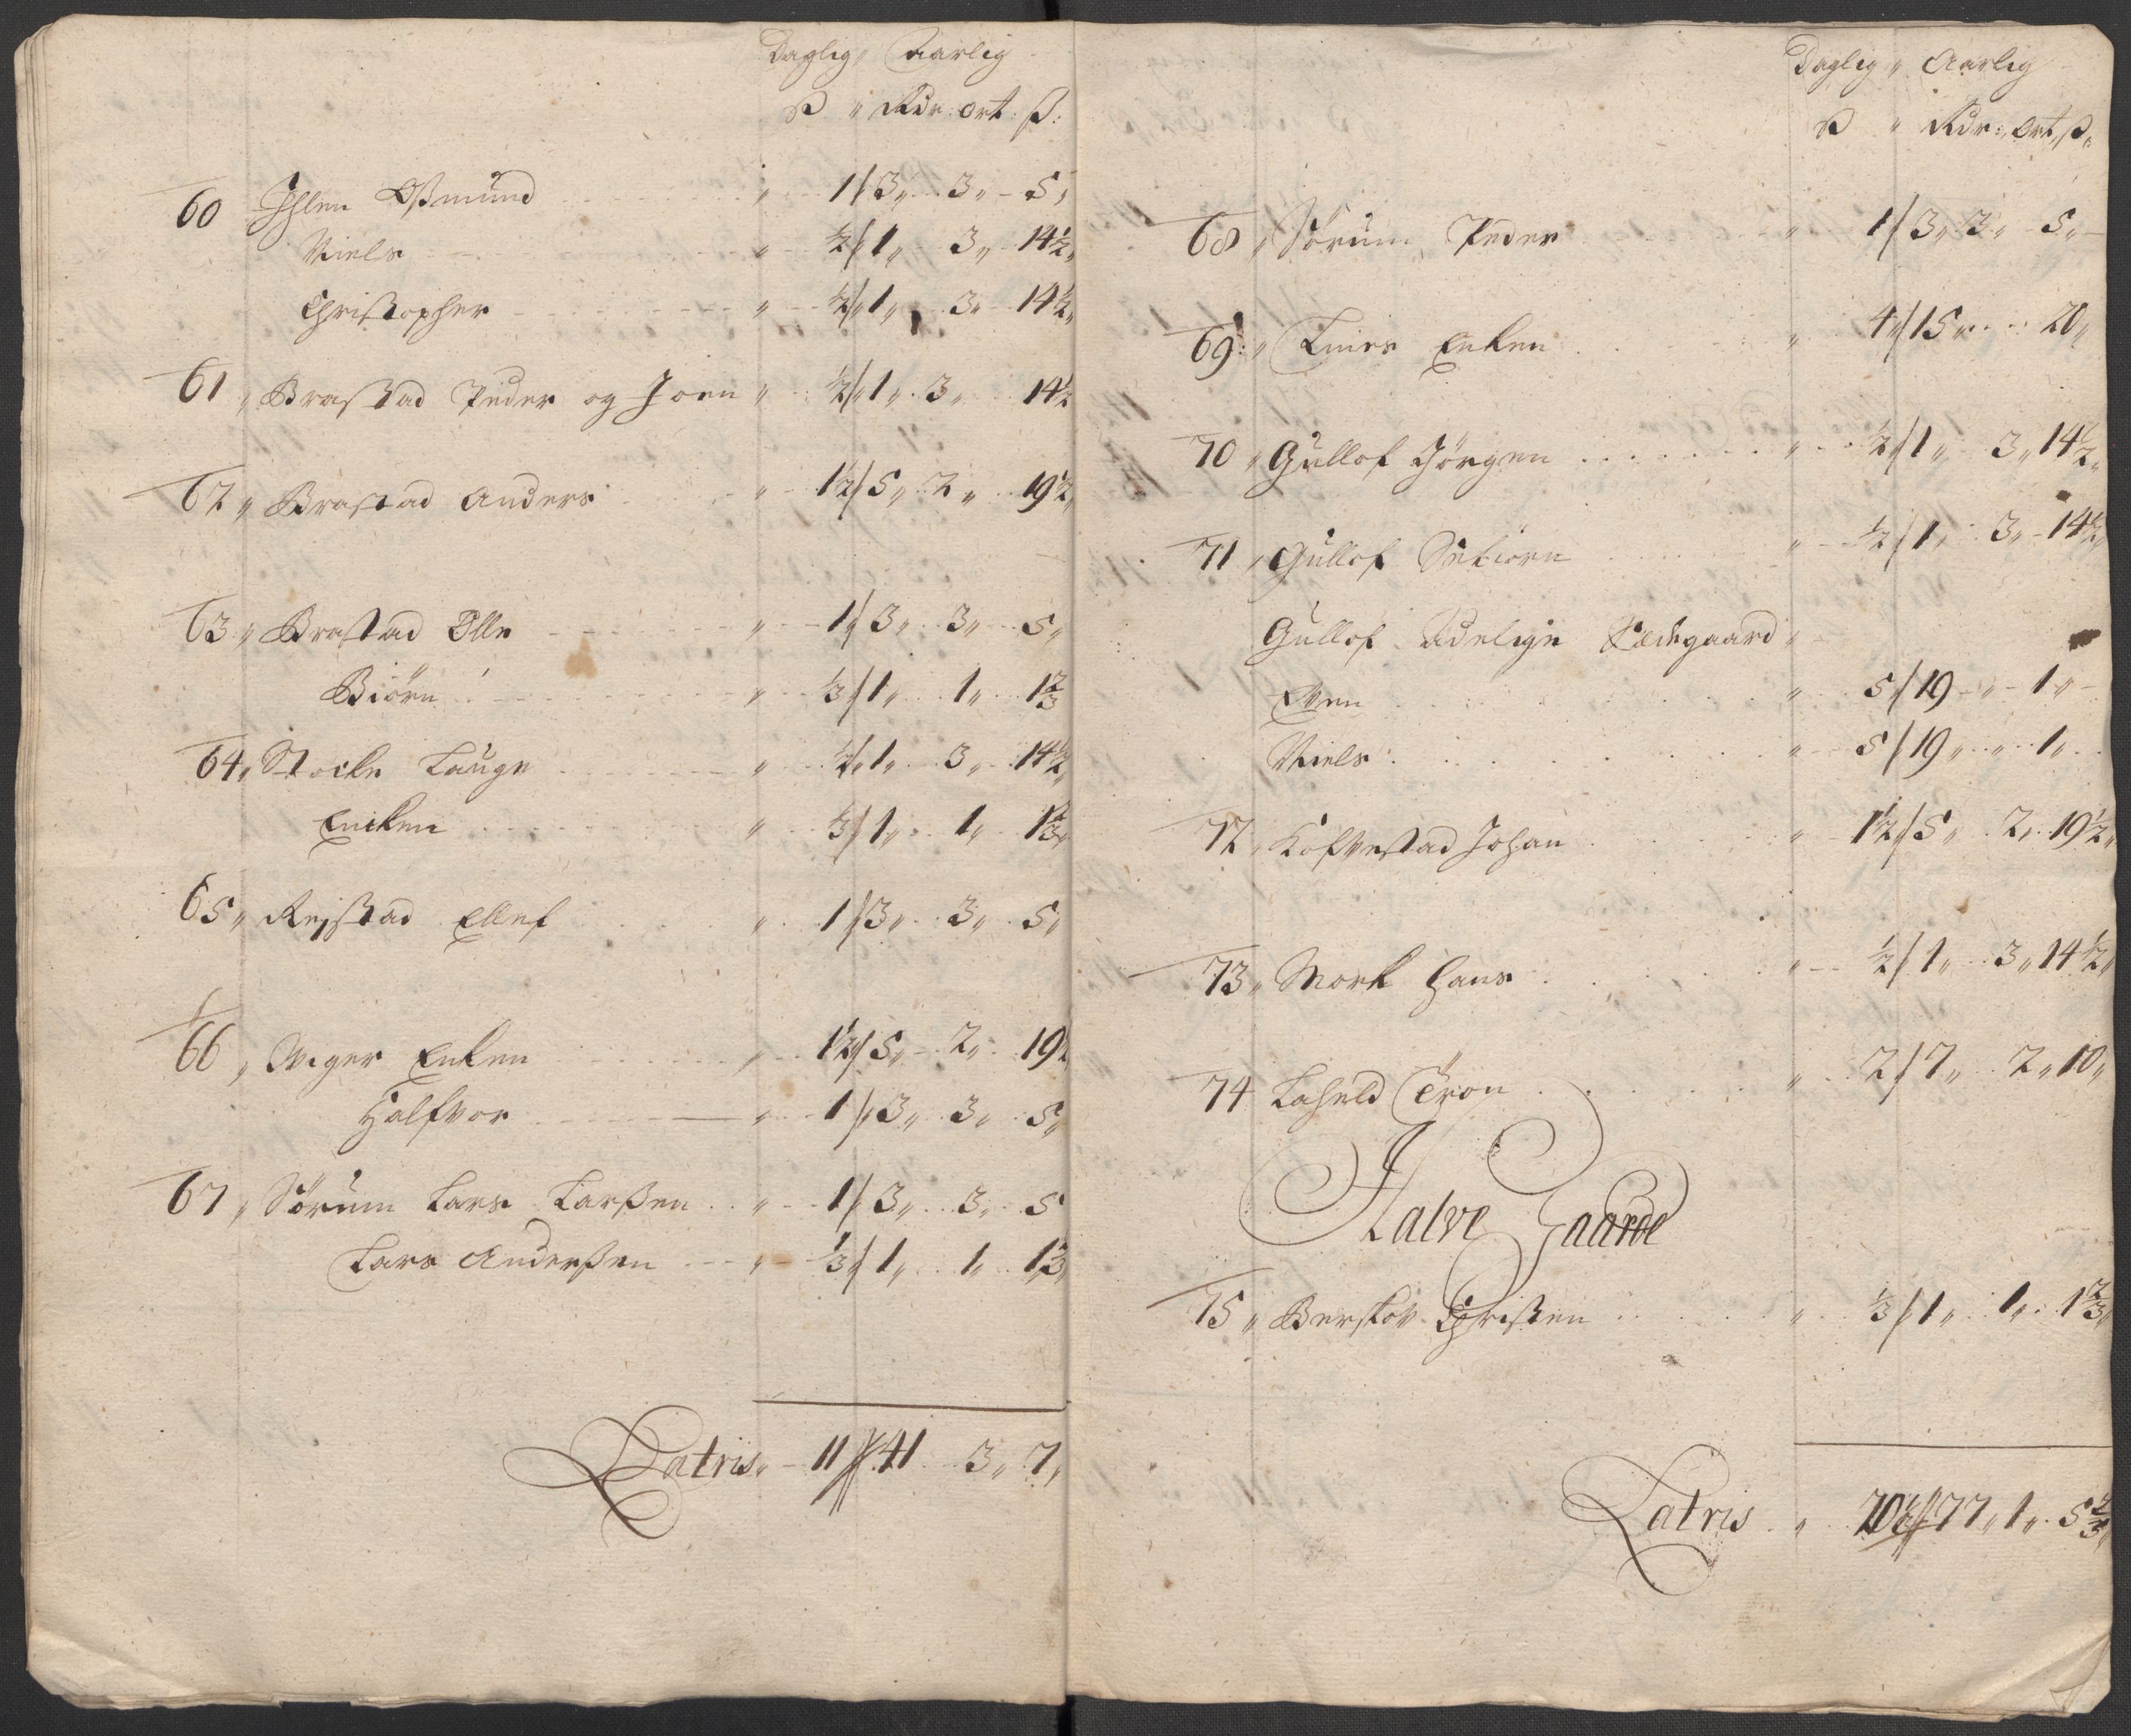 Daglig " Aarlig
ß " Rdr: ort: ß:
60 Ihlen Oßmund " 1 // 3 " 3 " 5 "
Niels " ½ // 1 " 3 " 14½ "
Christopher " ½ // 1 " 3 " 14½ "
61 " Braßtad Peder og Joen " ½ // 1 " 3 " 14½
62 " Brastad Anders " 1½ // 5 " 2 " 19½
63 " Brastad Olle " 1 // 3 " 3 " 5 "
Biörn " ⅓ // 1 " 1 " 1⅔
64 " Stocke Lauge " ½ // 1 " 3 " 14½ "
Encken " ⅓ // 1 " 1 " 1⅔ "
65 " Rejstad Ellef " 1 // 3 " 3 " 5 "
66 " Wiger Enken " 1½ // 5 " 2 " 19½
Halfvor " 1 // 3 " 3 " 5 "
67 " Sörum Lars Larßen " 1 // 3 " 3 " 5
Lars Anderßen " ⅓ // 1 " 1 " 1⅔ "
Latris " 11 // 41 " 3 " 7 "
Daglig " Aarlig
ß " Rdr: Ort, ß "
68 " Sörum Peder " 1 // 3 " 3 " 5 "
69 " Linnes Enken " 4 // 15 " 20 "
70 " Gullof Jörgen " ½ // 1 " 3 " 14½ "
71 " Gullof Setiörn " ½ // 1 " 3 " 14½ "
Gullof Adelige Sædegaard "
Even " 5 // 19 " 1 "
Niels " 5 // 19 " 1 "
72 " Kofvestad Johan " 1½ // 5 " 2 " 19½ "
73 " Mork Hans " ½ // 1 " 3 " 14½ "
74 Laheld Tron " 2 // 7 " 2 " 10 "
Halve Gaarde
75 " Berskov Christen " ⅓ // 1 " 1 " 1⅔ "
Latris " 20⅓ // 77 " 1 " 5⅔ "